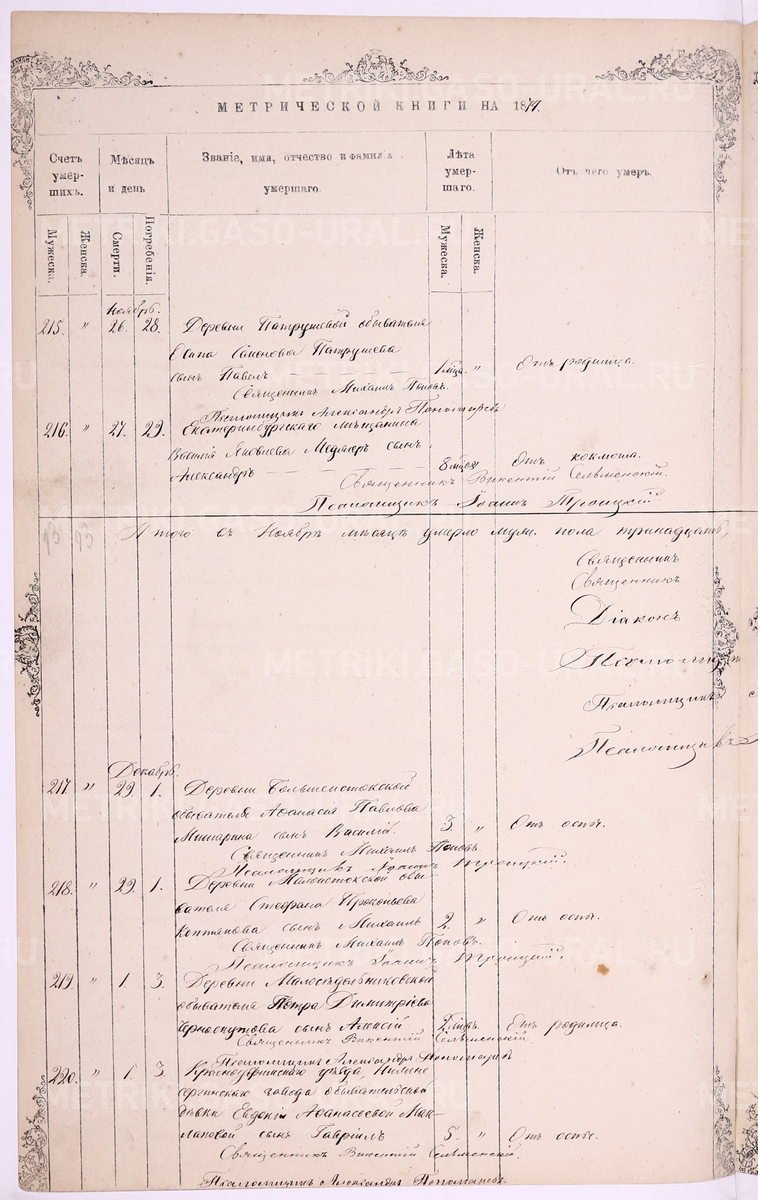 МЕТРИЧЕСКОЙ КНИГИ НА 1879.
Счетъ умер-шихъ.
Мѣсяцъ и день
Званіе, имя, отчество и фамилія умершаго.
Лѣта умер-шаго.
Отъ чего умеръ.
Мужеска.
Женска.
Смерти.
Погребенія.
Мужеска.
Женска.
Ноябрь.
215. " 26. 28. Деревни Патрушевой обывателя
Осипа Семенова Патрушева
сынъ Павелъ 1 мѣс. " Отъ родимца.
Священникъ Михаилъ Поповъ.
Псаломщикъ Александръ Пономаревъ
216. " 27. 29. Екатеринбургскаго мѣщанина
Василія Яковлева сынъ
Александръ 8 Отъ коклюша.
Священникъ Викентій Сельменскій.
Псаломщикъ Іоаннъ Троицкій.
Итого въ Ноябрѣ мѣсяцѣ умерло муж. пола тринадцать,
Священникъ
Священникъ
Діаконъ
Псаломщикъ
Псаломщикъ
Псаломщикъ
Декабрь.
217. " 29. 1. Деревни Большеистокской
обывателя Аѳанасія Павлова
сынъ Василій. 3. " Отъ оспы.
Священникъ Михаилъ Поповъ.
Псаломщикъ Іоаннъ Троицкій.
218. " 29. 1. Деревни Малоистокской обы-
вателя Стефана Прокопьева
Коптякова сынъ Михаилъ 2. " Отъ оспы.
Священникъ Михаилъ Поповъ.
Псаломщикъ Іоаннъ Троицкій.
219. " 1. 3. Деревни Малоседельниковской
обывателя Петра Димитріева
Чепчугова сынъ Алексій 2 " Отъ родимца.
Священникъ Викентій Сельменскій.
Псаломщикъ Александръ Пономаревъ
220. " 1. 3. Красноуфимскаго уѣзда, Нижне
сергинскаго завода обывательской
дѣвки Евдокіи Аѳанасьевой Мак-
лаковой сынъ Гавріилъ 5. " Отъ оспы.
Священникъ Викентій Сельменскій.
Псаломщикъ Александръ Пономаревъ.
METRIKI.GASO-URAL.RU